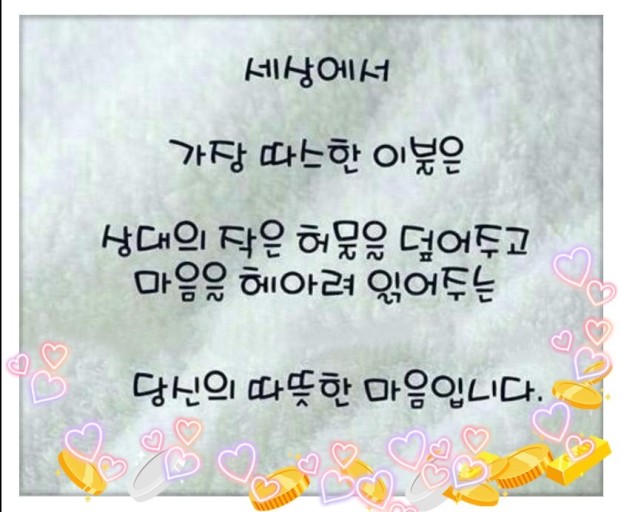 세상에서
가장 따스한 이불은
상대의 작은 허물을 덮어주고
마음을 헤아려 읽어주는
당신의 따뜻한 마음입니다.